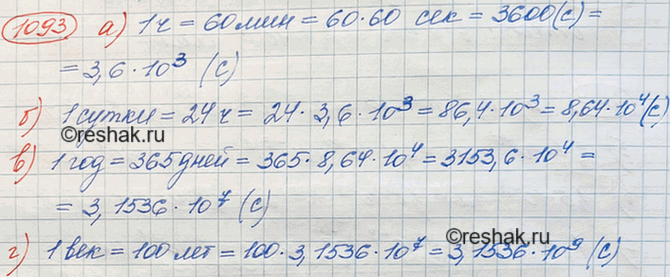 1093 а) 1 ч = 60 мин = 60·60 сек = 3600 (с) =
= 3,6 · 10³ (с)
б) 1 сутки = 24 ч = 24 · 3,6 · 10³ = 86,4 · 10³ = 8,64 · 10⁴ (с)
©reshak.ru
в) 1 год = 365 дней = 365 · 8,64 · 10⁴ = 3153,6 · 10⁴ =
= 3,1536 · 10⁷ (с)
©reshak.ru
г) 1 век = 100 лет = 100 · 3,1536 · 10⁷ = 3,1536 · 10⁹ (с)